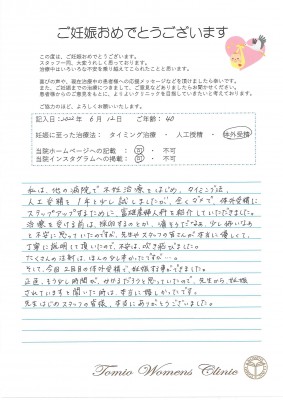 ご妊娠おめでとうございます
この度は、ご妊娠おめでとうございます。
スタッフ一同、大変うれしく思っております。
治療中はいろいろな不安を乗り越えてこられたことと思います。
喜びの声や、現在治療中の患者様への応援メッセージなどを頂けましたら幸いです。
また、妊娠までの治療につきまして、ご意見などありましたらお聞かせください。
患者様からのご意見をもとに、よりよいクリニックを目指していきたいと考えております。
ご協力のほど、よろしくお願いいたします。
記入日：2022年 6月 12日 ご年齢：40
妊娠に至った治療法： タイミング治療 ・ 人工授精 ・ 体外受精
当院ホームページへの記載 ： 可 ・ 不可
当院インスタグラムへの掲載 ： 可 ・ 不可
私は、他の病院で不妊治療をはじめ、タイミング法、
人工授精を1年と少し試しましたが、全くダメで、体外受精に
ステップアップするために、富雄産婦人科を紹介していただきました。
治療を受ける前は、採卵するのとか、痛そうだなぁ、少し怖いなぁ
と不安に思っていたのですが、先生やスタッフの皆さんが本当に優しくて、
丁寧に説明して頂いたので、不安は、吹き飛びました。
たくさんの注射は、ほんの少し辛かったですが…。
そして、今回2回目の体外受精で妊娠する事ができました。
正直、もう少し時間が、かかるだろうと思っていたので、先生から、妊娠
されていますと聞いた時は、本当に嬉しかったです。
先生はじめスタッフの皆様、本当にありがとうございました。
Tomio Womens Clinic